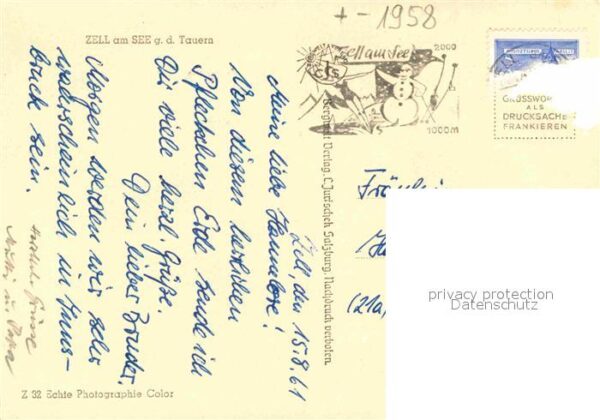 + - 1958
ZELL am SEE g. d. Tauern
Zell am See
2000
1000m
GRUSSWOR
ALS
DRUCKSACHE
FRANKIEREN
Zell, den 15.8.61
Meine liebe Hannelore!
Von diesem herrlichen
Fleckchen Erde sende ich
Dir viele herzl. Grüße.
Dein lieber Bruder.
Morgen werden wir sehr
wahrscheinlich in Inns-
bruck sein.
Herzliche Grüsse
Mutti u. Papa
Bergwelt Verlag, C. Jurischek, Salzburg. Nachdruck verboten.
Fräulein
(21a)
privacy protection
Datenschutz
Z 32 Echte Photographie Color